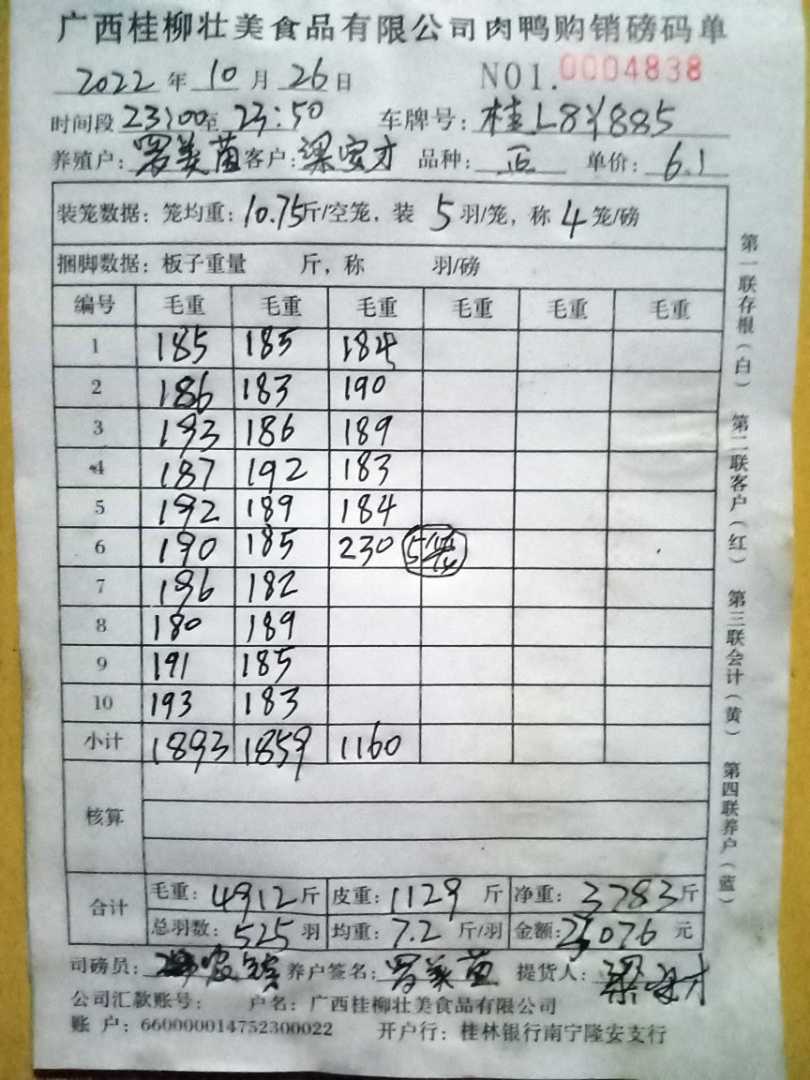 广西桂柳壮美食品有限公司肉鸭购销磅码单
2022年10月26日 NO1.0004838
时间段23:00至23:50 车牌号:桂L8Y885
养殖户:罗美苗客户:梁安才 品种:正 单价:6.1
装笼数据:笼均重:10.75斤/空笼,装5羽/笼,称4笼/磅
捆脚数据:板子重量 斤,称 羽/磅
编号 毛重 毛重 毛重 毛重 毛重 毛重
1 185 185 184
2 186 183 190
3 193 186 189
4 187 192 183
5 192 189 184
6 190 185 230 5笼
7 196 182
8 180 189
9 191 185
10 193 183
小计 1893 1859 1160
核算
合计 毛重:4912斤 皮重:1129斤 净重:3783斤
总羽数:525羽 均重:7.2斤/羽 金额:23076元
司磅员: 养户签名:罗美苗 提货人:梁安才
公司汇款账号: 户名:广西桂柳壮美食品有限公司
账 户:660000014752300022 开户行:桂林银行南宁隆安支行
第一联存根(白) 第二联客户(红) 第三联会计(黄) 第四联养户(蓝)